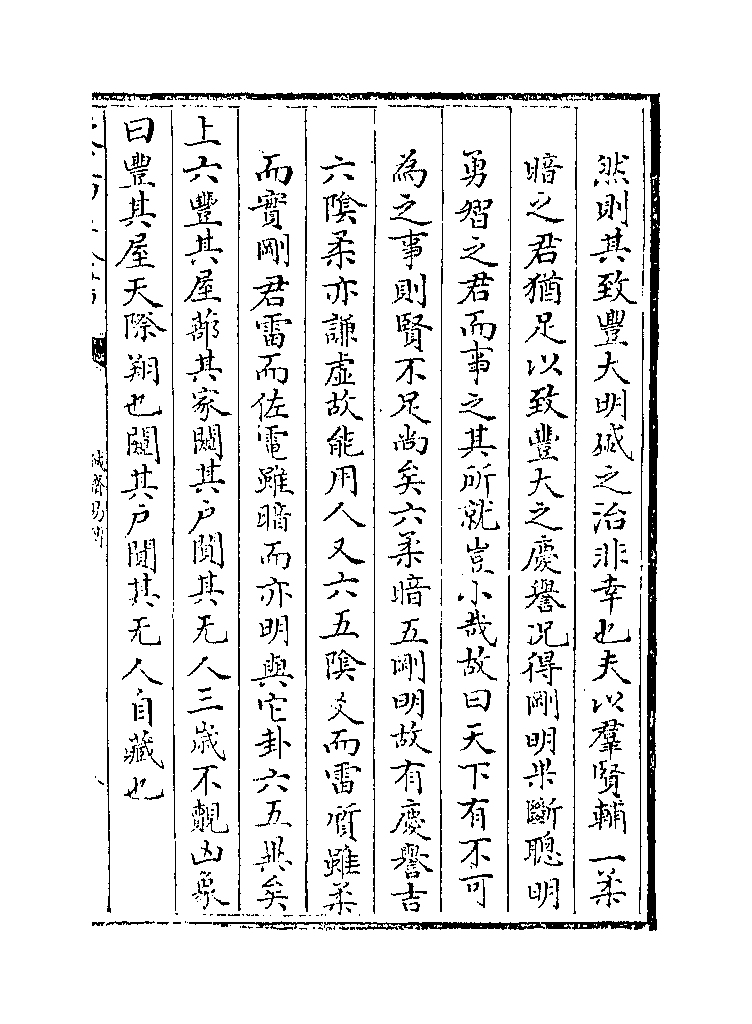 然則其致豐大明盛之治非幸也夫以羣賢輔一柔
暗之君猶足以致豐大之慶譽况得剛明果斷聰明
勇智之君而事之其所就豈小哉故曰天下有不可
為之事則賢不足尚矣六柔暗五剛明故有慶譽吉
六隂柔亦謙虚故能用人又六五隂爻而雷質雖柔
而實剛君雷而佐電雖暗而亦明與它卦六五異矣
上六豐其屋蔀其家闚其户闃其无人三歳不覿凶象
曰豐其屋天際翔也闚其户闃其无人自藏也
誠齋易傳